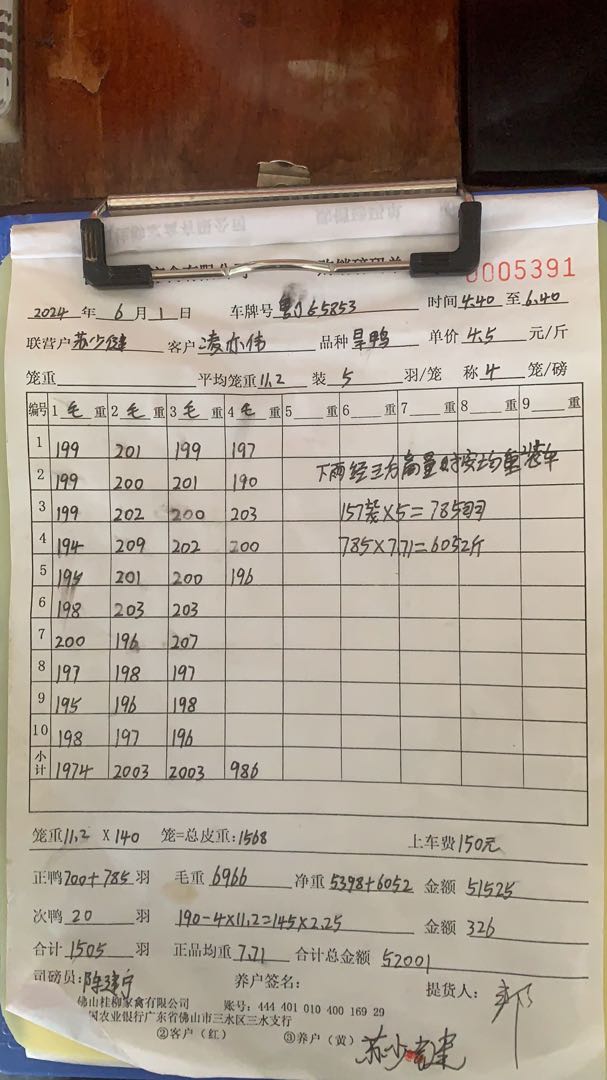 0005391
2024 年 6 月 1 日 车牌号 粤J65853 时间 4.40 至 6.40
联营户 苏少健 客户 凌亦伟 品种 旱鸭 单价 4.5 元/斤
笼重 平均笼重 11.2 装 5 羽/笼 称 4 笼/磅
编号 1 毛 重 2 毛 重 3 毛 重 4 毛 重 5 重 6 重 7 重 8 重 9 重
1 199 201 199 197
2 199 200 201 190 下雨经三方商量对安均重装车
3 199 202 200 203 157笼×5=785羽
4 194 209 202 200 785×7.71=6052斤
5 195 201 200 196
6 198 203 203
7 200 196 207
8 197 198 197
9 195 196 198
10 198 197 196
小计 1974 2003 2003 986
笼重 11.2 X 140 笼=总皮重: 1568 上车费 150元
正鸭 700+785 羽 毛重 6966 净重 5398+6052 金额 51525
次鸭 20 羽 190-4×11.2=145×2.25 金额 326
合计 1505 羽 正品均重 7.71 合计总金额 52001
司磅员: 陈建宁 养户签名: 提货人:
佛山桂柳家禽有限公司 账号: 444 401 010 400 169 29
国农业银行广东省佛山市三水区三水支行
②客户(红) ③养户(黄) 苏少健